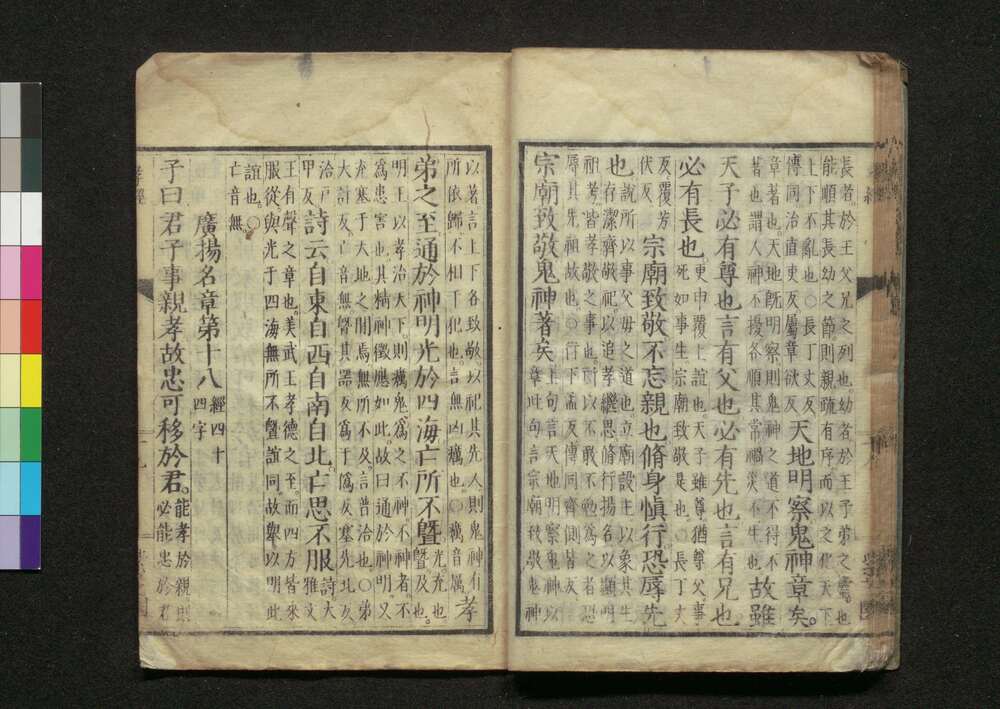 長者於王父兄之列也幼者於王子弟之𩔖也
能順其長幼之節則親疏有序而以之化天下
上下不亂也○長丁丈反
傳同治直吏反屬章欲反
天地明察鬼神章矣。
章著也天地既明察則鬼神之道不得不
著也謂人神不擾各順其常禍災不生也
故雖
天子必有尊也言有父也必有先也言有兄也
必有長也
更申覆上誼也天子雖尊猶尊父事
死如事生宗廟致敬是也○長丁丈
反覆芳
伏反
宗廟致敬不忘親也脩身慎行恐辱先
也
說所以事父母之道也立廟設主以象其生
存潔齊敬祀以追孝繼思脩行揚名以顯明
祖考皆孝敬之事也所以不敢不勉為之者恐
辱其先祖故也○行下孟反傳同齊側皆反
宗廟致敬鬼神著矣
上句言天地明察鬼神以
章此句言宗廟致敬鬼神
以著言上下各致敬以祀其先人則鬼神有
所依歸不相干犯也言無凶癘也○癘音厲
孝
弟之至通於神明光於四海亡所不曁
光充也
曁及也。
明王以孝治天下則癘鬼為之不神不神者不
為患害也其精神徵應如此故曰通於神明又
充塞于天地之間焉無所不及言普洽也○弟
大計反亡音無曁其器反為于偽反塞先北反
洽戶
甲反
詩云自東自西自南自北亡思不服
詩大
雅文
王有聲之章也美武王孝德之至而四方皆來
服從與光于四海無所不曁誼同故舉以明此
誼也○
亡音無
廣揚名章第十八
經四十
四字
子曰君子事親孝故忠可移於君。
能孝於親則
必能忠於君